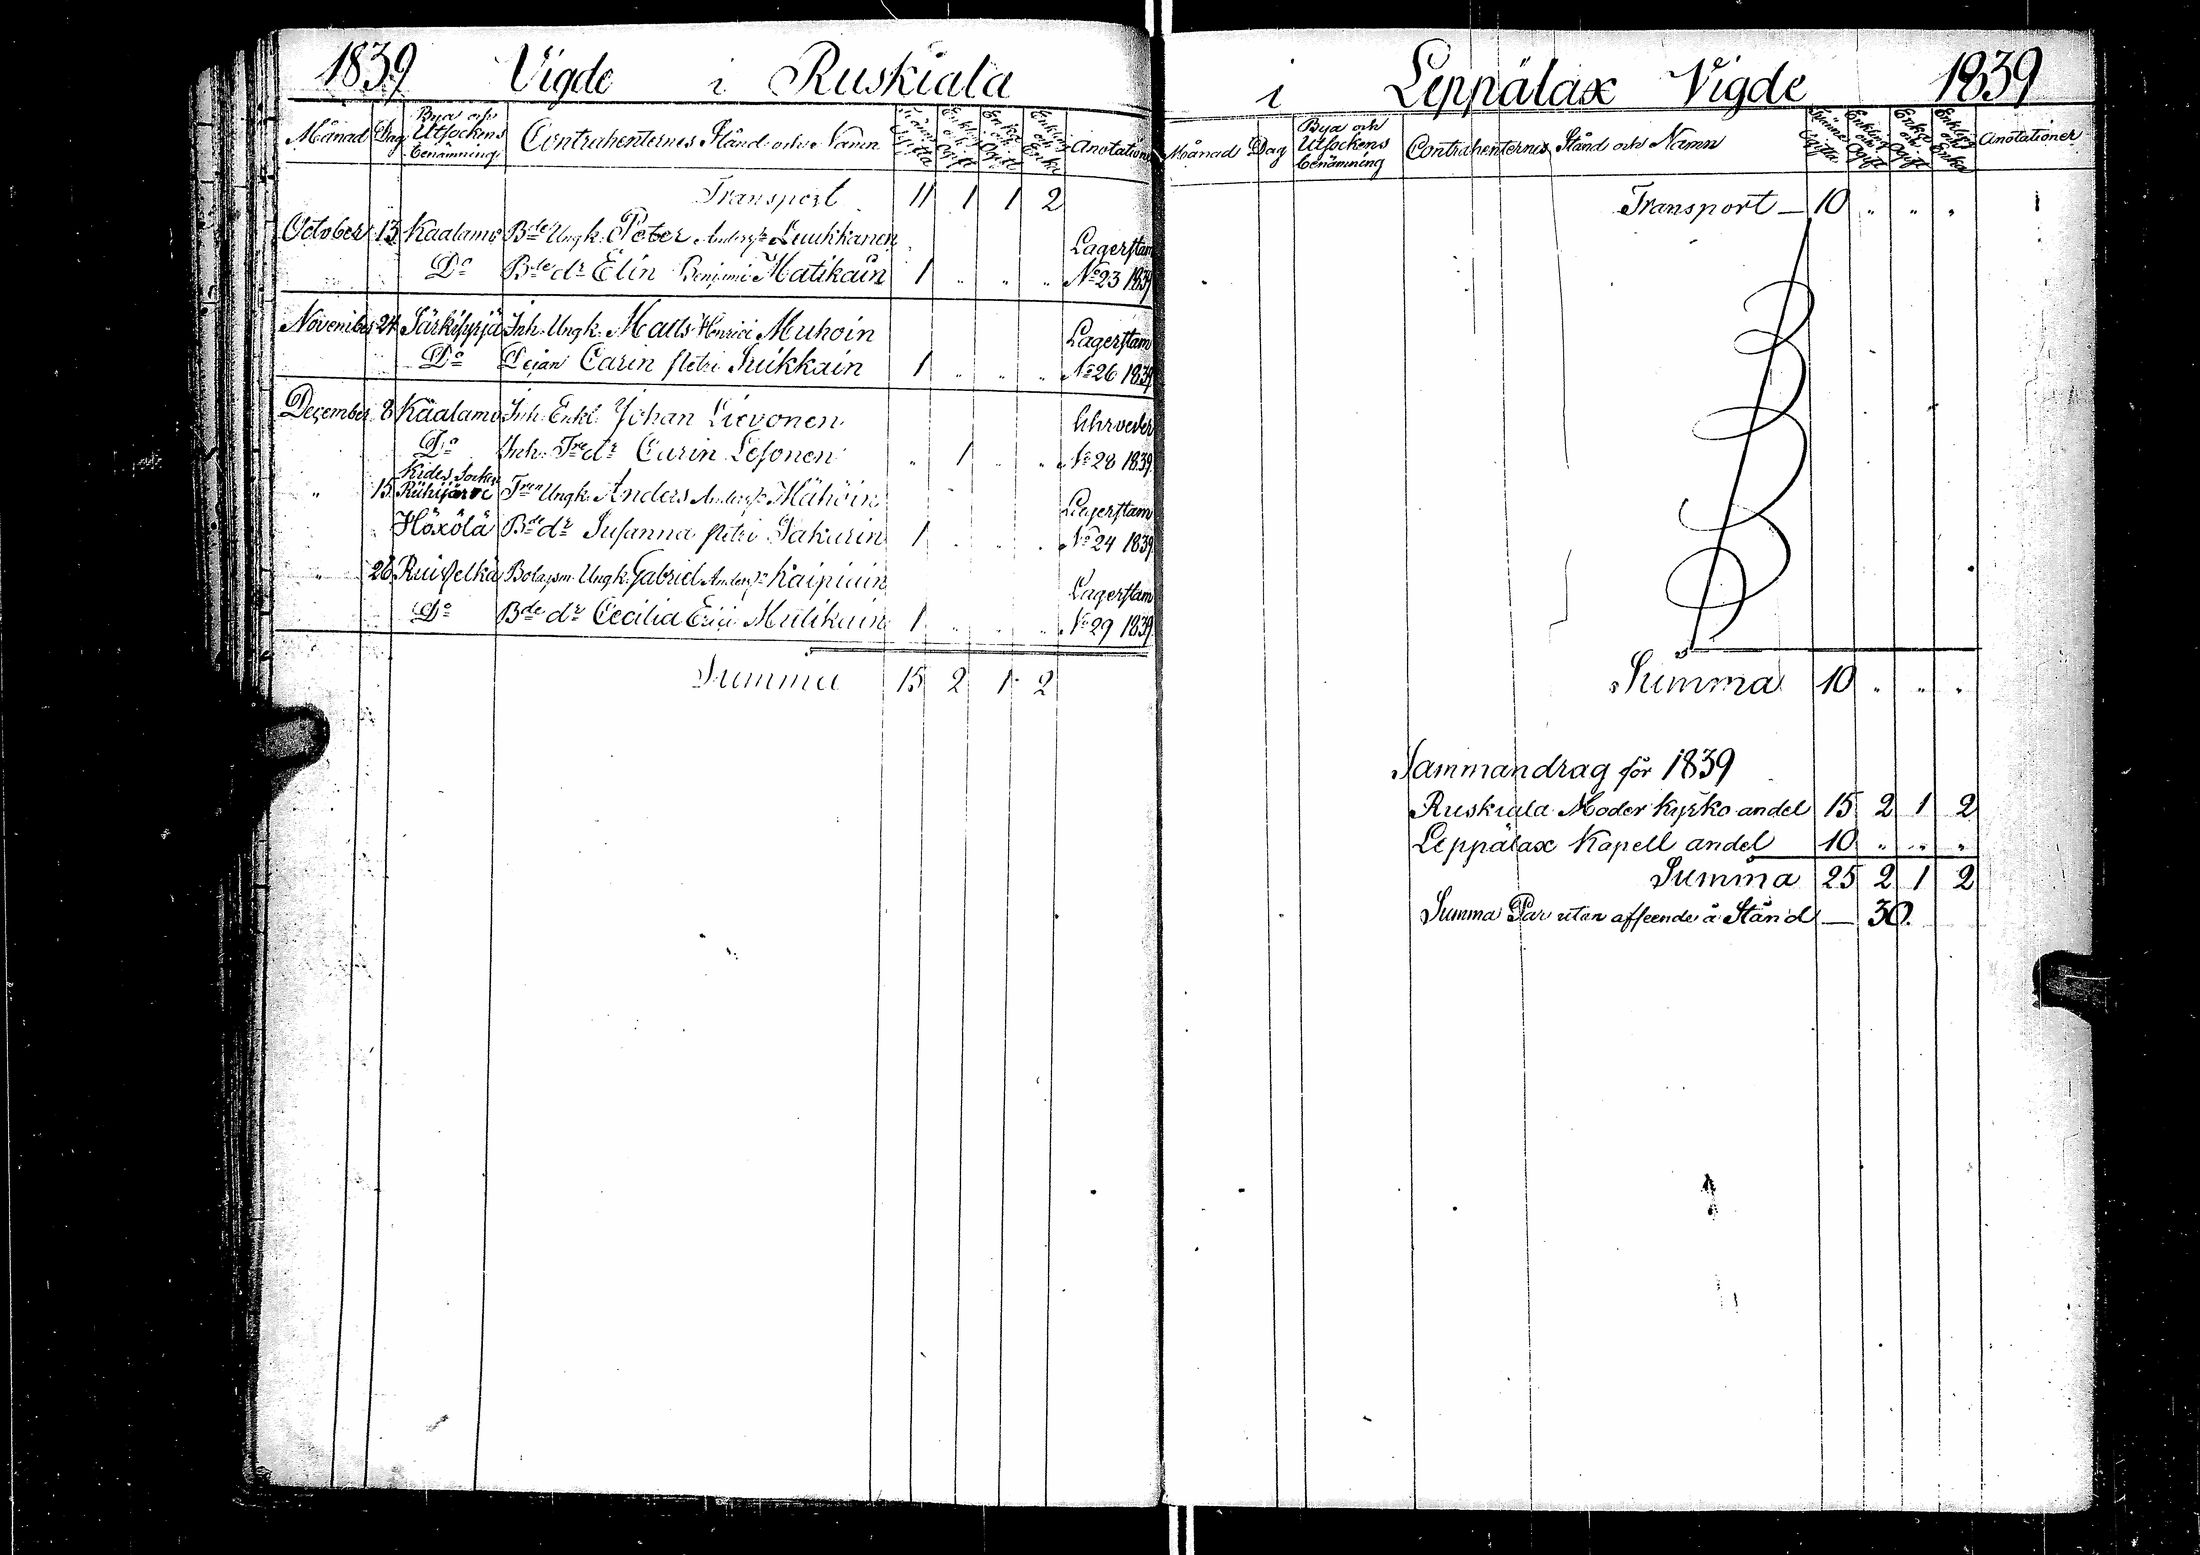 1839 Vigde i Ruskiala
Månad Dag Bya och Utsockens benämning Contrahenternes Stånd och Namn Enkling och Ogift Enka och Ogift Enkling och Enka Anotationer
Transport 11 1 1 2
October 13 Kaalamo Bde Ungk. Peter Andersn Luukkanen Lagerstam
Do Bde dr Elin Benjami Matikain 1 " " " No 23 1839
November 24 Särkisyrjä Inh. Ungk. Matts Henrici Muhoin Lagerstam
Do Pejan Carin Petri 1 " " " No 26 1839
December 8 Kaalamo Inh. Enkl. Johan Lievonen
Do Inh. Tre dr Carin Lesonen " 1 " " No 28 1839
Kides Socken
" 15 Anders Andersn Lagerstam
Höxölä Bde dr Susanna Petri Sakarin 1 " " " No 24 1839
" 26 Ruisselkä Ungk. Gabriel Andersn Kaipiain Lagerstam
Do Bde dr Cecilia Erici 1 " " " No 29 1839
Summa 15 2 1 2
i Leppälax Vigde 1839
Månad Dag Bya och Utsockens benämning Contrahenternes Stånd och Namn Enkling och Ogift Enka och Ogift Enkling och Enka Anotationer
Transport — 10 " " "
Summa 10 " " "
Sammandrag för 1839
Ruskiala Moder kyrko andel 15 2 1 2
Leppälax Kapell andel 10 " " "
Summa 25 2 1 2
Summa Par utan afseende å Stånd — 30.